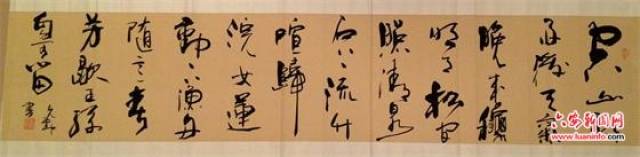 空山新
雨後天氣
晚来穐
明月松間
照清泉
石上流竹
喧歸
浣女蓮
動下漁舟
随意春
芳歇王孫
自可留
六安新闻网